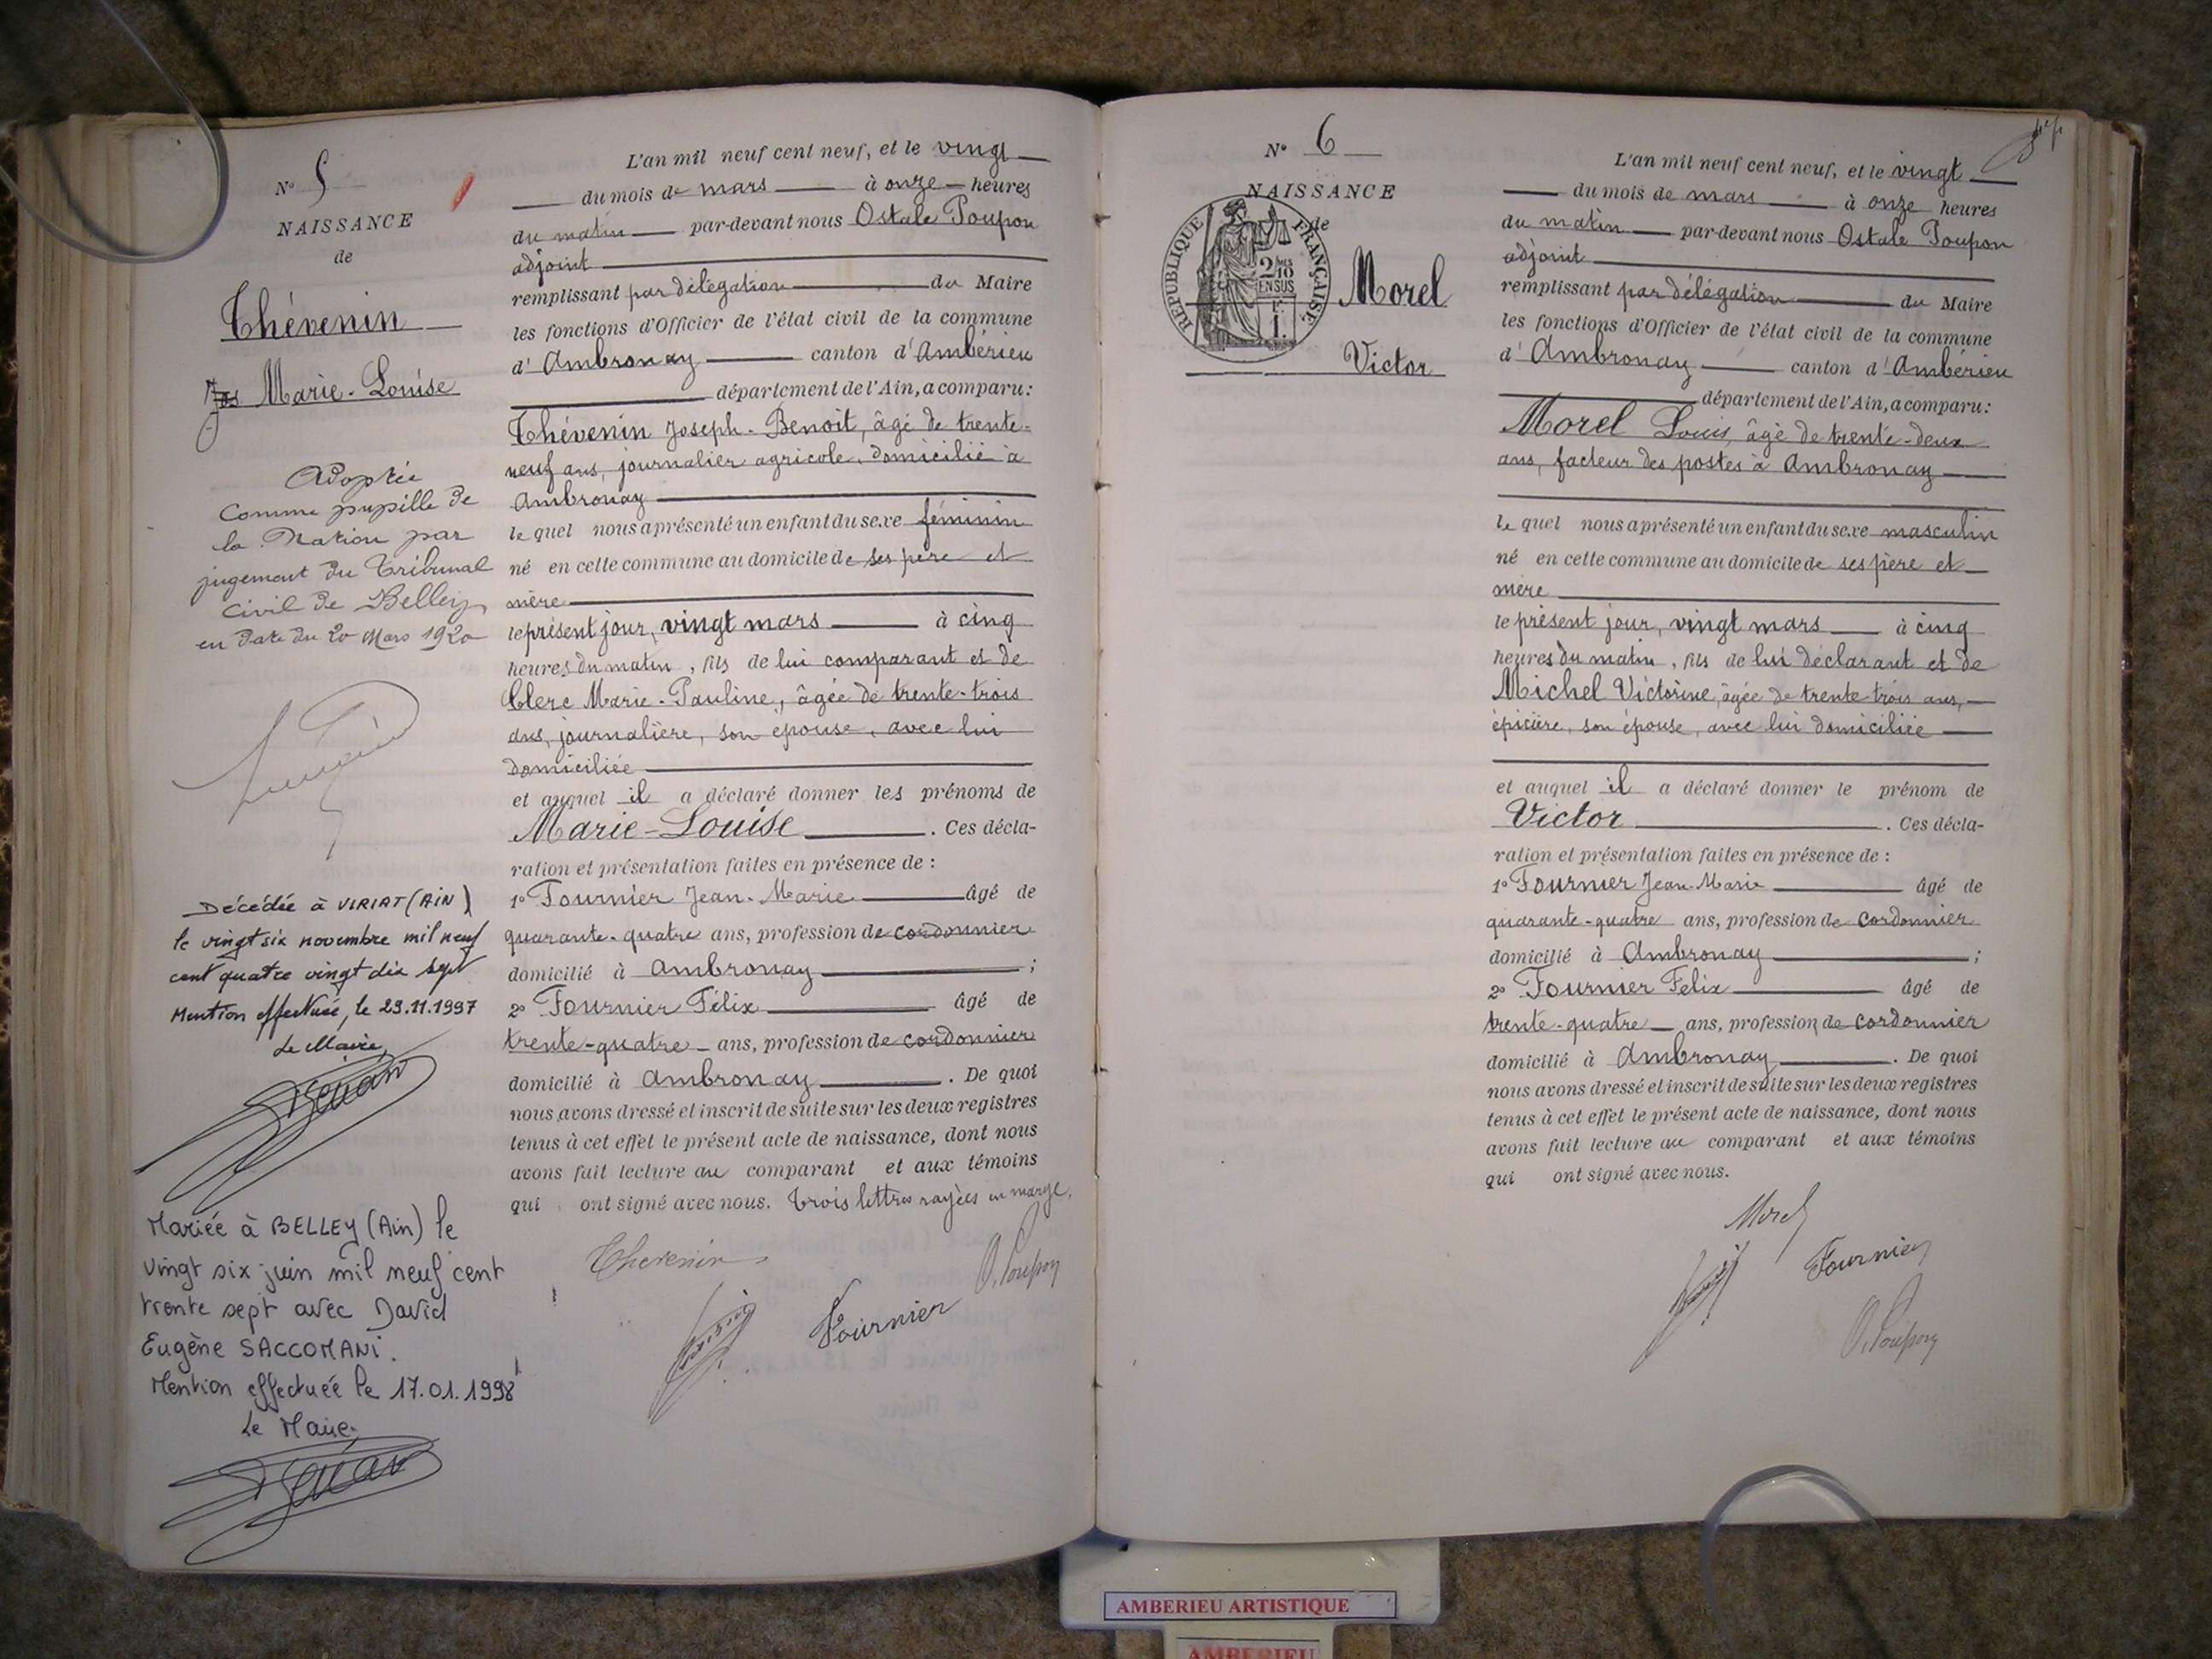 N° 5
NAISSANCE
de
Thévenin
Jos Marie-Louise
Adoptée
comme pupille de
la Nation par
jugement du Tribunal
Civil de Belley
en date du 20 Mars 1920
Décédée à VIRIAT (AIN)
le vingt six novembre mil neuf
cent quatre vingt dix sept
Mention effectuée, le 29.11.1997
Le Maire,
Mariée à BELLEY (Ain) le
vingt six juin mil neuf cent
trente sept avec David
Eugène SACCOMANI.
Mention effectuée le 17.01.1998
Le Maire,
L'an mil neuf cent neuf, et le vingt
du mois de mars à onze heures
du matin par-devant nous Ostale Poupon
adjoint
remplissant par délégation du Maire
les fonctions d'Officier de l'état civil de la commune
d'Ambronay canton d'Ambérieu
département de l'Ain, a comparu:
Thévenin Joseph-Benoit, âgé de trente-
neuf ans, journalier agricole, domicilié à
Ambronay
lequel nous a présenté un enfant du sexe féminin
né en cette commune au domicile de ses père et
mère
le présent jour, vingt mars à cinq
heures du matin, fils de lui comparant et de
Clerc Marie-Pauline, âgée de trente-trois
ans, journalière, son épouse, avec lui
domiciliée
et auquel il a déclaré donner les prénoms de
Marie-Louise. Ces décla-
ration et présentation faites en présence de :
1° Fournier Jean-Marie âgé de
quarante-quatre ans, profession de cordonnier
domicilié à Ambronay ;
2° Fournier Félix âgé de
trente-quatre ans, profession de cordonnier
domicilié à Ambronay. De quoi
nous avons dressé et inscrit de suite sur les deux registres
tenus à cet effet le présent acte de naissance, dont nous
avons fait lecture au comparant et aux témoins
qui ont signé avec nous. Trois lettres rayées en marge.
Thevenin
O. Poupon
Fournier
N° 6
NAISSANCE
de
REPUBLIQUE FRANÇAISE
2/10
EN SUS
1F
Morel
Victor
L'an mil neuf cent neuf, et le vingt
du mois de mars à onze heures
du matin par-devant nous Ostale Poupon
adjoint
remplissant par délégation du Maire
les fonctions d'Officier de l'état civil de la commune
d'Ambronay canton d'Ambérieu
département de l'Ain, a comparu:
Morel Louis, âgé de trente-deux
ans, facteur des postes à Ambronay
lequel nous a présenté un enfant du sexe masculin
né en cette commune au domicile de ses père et
mère
le présent jour, vingt mars à cinq
heures du matin, fils de lui déclarant et de
Michel Victorine, âgée de trente-trois ans,
épicière, son épouse, avec lui domiciliée
et auquel il a déclaré donner le prénom de
Victor. Ces décla-
ration et présentation faites en présence de :
1° Fournier Jean-Marie âgé de
quarante-quatre ans, profession de cordonnier
domicilié à Ambronay ;
2° Fournier Félix âgé de
trente-quatre ans, profession de cordonnier
domicilié à Ambronay. De quoi
nous avons dressé et inscrit de suite sur les deux registres
tenus à cet effet le présent acte de naissance, dont nous
avons fait lecture au comparant et aux témoins
qui ont signé avec nous.
Morel
Fournier
O. Poupon
AMBERIEU ARTISTIQUE
AMBERIEU